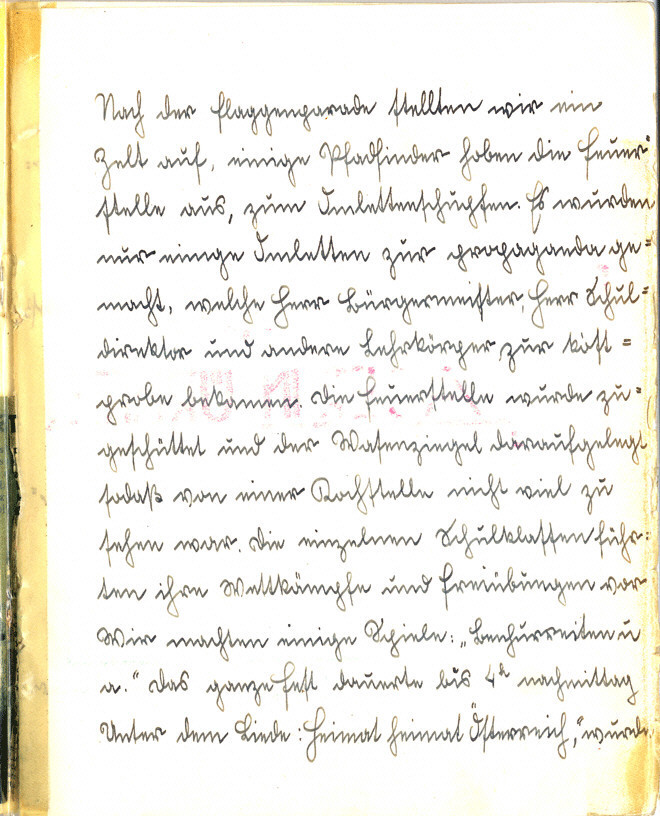 Nach der flaggenparade stellten wir ein
Zelt auf, einige Pfadfinder hoben die feuer=
stelle aus, zum Omlettenschupfen. Es wurden
nur einige Omletten zur propaganda ge=
macht, welche Herr Bürgermeister, Herr Schul=
direktor und andere Lehrkörper zur köst=
probe bekamen. Die feuerstelle wurde zu=
geschüttet und der Wasenziegel daraufgelegt
sodaß von einer Kochstelle nicht viel zu
sehen war. Die einzelnen Schulklassen führ=
ten ihre Wettkämpfe und freiübungen vor
Wir machten einige Spiele: „Benhurreiten u
a." Das ganze fest dauerte bis 4h nachmittag
Unter dem Liede: Heimat heimat Österreich," wurde